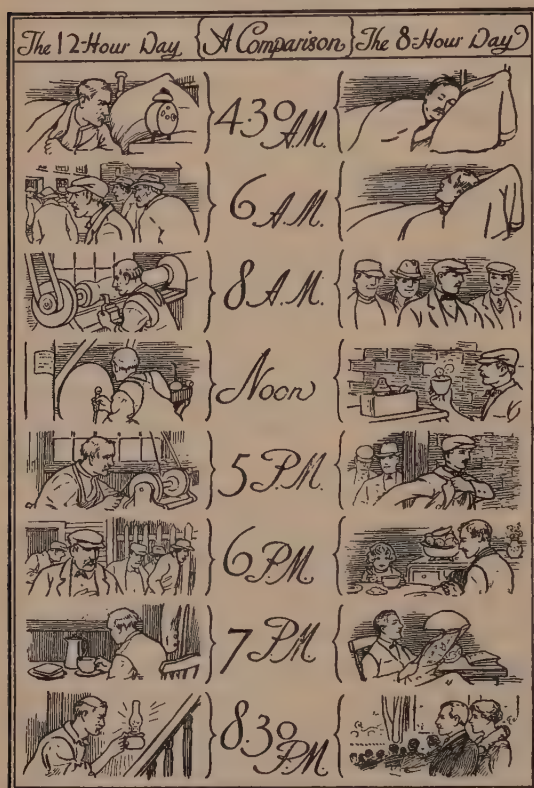 The 12-Hour Day { A Comparison } The 8-Hour Day
4.30 A.M.
6 A.M.
8 A.M.
Noon
5 P.M.
6 P.M.
7 P.M.
8.30 P.M.